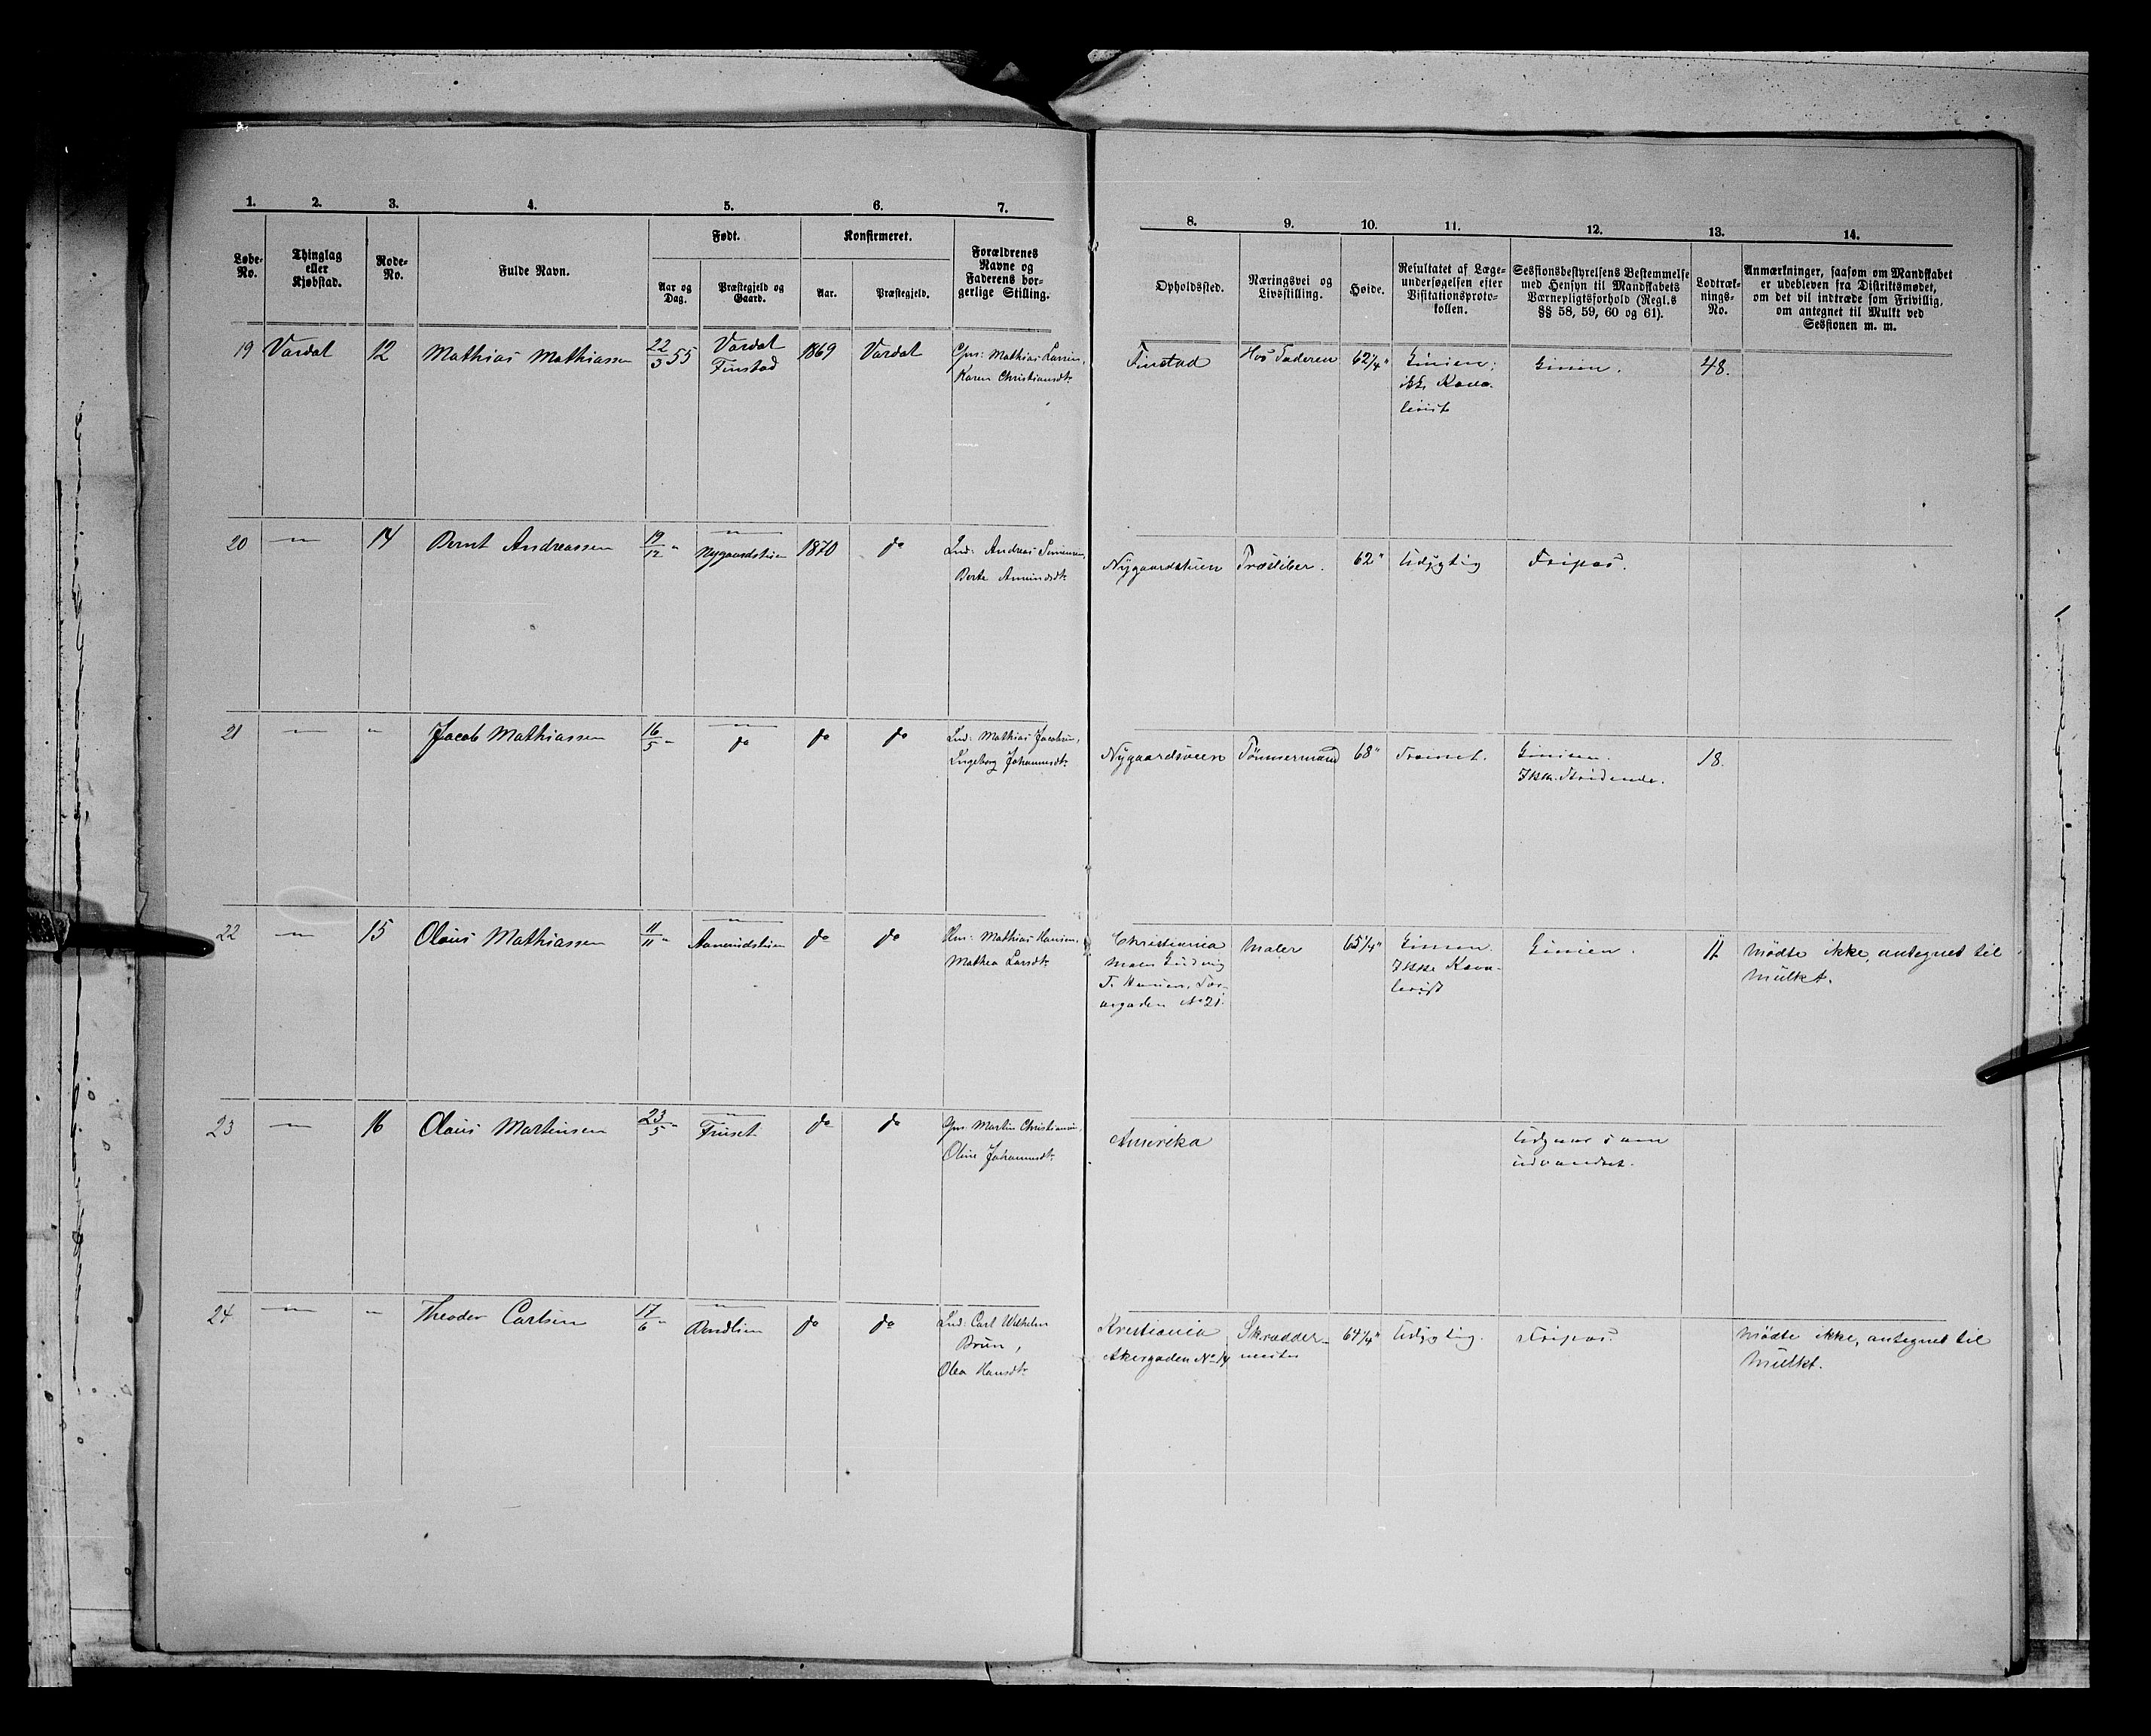 1. 2. 3. 4. 5. 6. 7.
Løbe-No.
Thinglag eller Kjøbstad.
Rode-No.
Fulde Navn.
Født.
Aar og Dag.
Præstegjeld og Gaard.
Konfirmeret.
Aar.
Præstegjeld.
Forældrenes Navne og Faderens borgerlige Stilling.
8. 9. 10. 11. 12. 13. 14.
Opholdssted.
Næringsvei og Livsstilling.
Høide.
Resultatet af Lægeundersøgelsen efter Visitationsprotokollen.
Sessionsbestyrelsens Bestemmelse med Hensyn til Mandskabets Værnepligtsforhold (Regl.s §§ 58, 59, 60 og 61).
Lodtræknings-No.
Anmærkninger, saasom om Mandskabet er udebleven fra Distriktsmødet, om det vil indtræde som Frivillig, om antegnet til Mulkt ved Sessionen m. m.
19 Vardal 12 Mathias Mathiassen 22/3 55 Vardal Finstad 1869 Vardal Gbr: Mathias Larsen, Karen Christiansdt.
Finstad Hos Faderen 62¼" Linien; ikke Kavalerist Linien. 48.
20 — 14 Bernt Andreassen 19/12 " — Nygaardstuen 1870 do Ind: Andreas Simensen, Berte Amundsdt.
Nygaardstuen Træsliber. 62" Udygtig Fripas.
21 — " Jacob Mathiassen 16/5 " — do do do Ind: Mathias Jacobsen, Ingeborg Johannesdt.
Nygaardsveen Tønnermand 68" Trainet. Linien. Ikke Ridende. 18.
22 — 15 Olaus Mathiassen 11/11 " — do do Hm: Mathias Hansen, Mathea Larsdt.
Christiania Maler Ludvig T. Hansen, No 21. Maler 65¼" Linien. Ikke Kavalerist Linien. 11 Mødte ikke, antegnet til Mulkt.
23 — 16 Olaus Martinsen 23/5 " — Finset do do Gbr: Martin Christiansen, Oline Johannesdt.
Amerika Udgaar som udvandret.
24 — " Theodor Carlsen 17/6 " — do do Ind: Carl Wilhelm Brun, Olea Hansdt.
Kristiania Akersgaden No 14 Skræddermester 64¼" Udygtig. Fripas. Mødte ikke, antegnet til Mulkt.